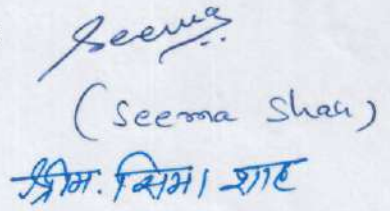 Seema
(Seema Shah)
श्रीम. सिमा शाह